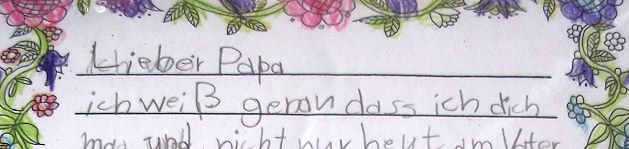 Lieber Papa
ich weiß genau dass ich dich
mag und nicht nur heut am Vater